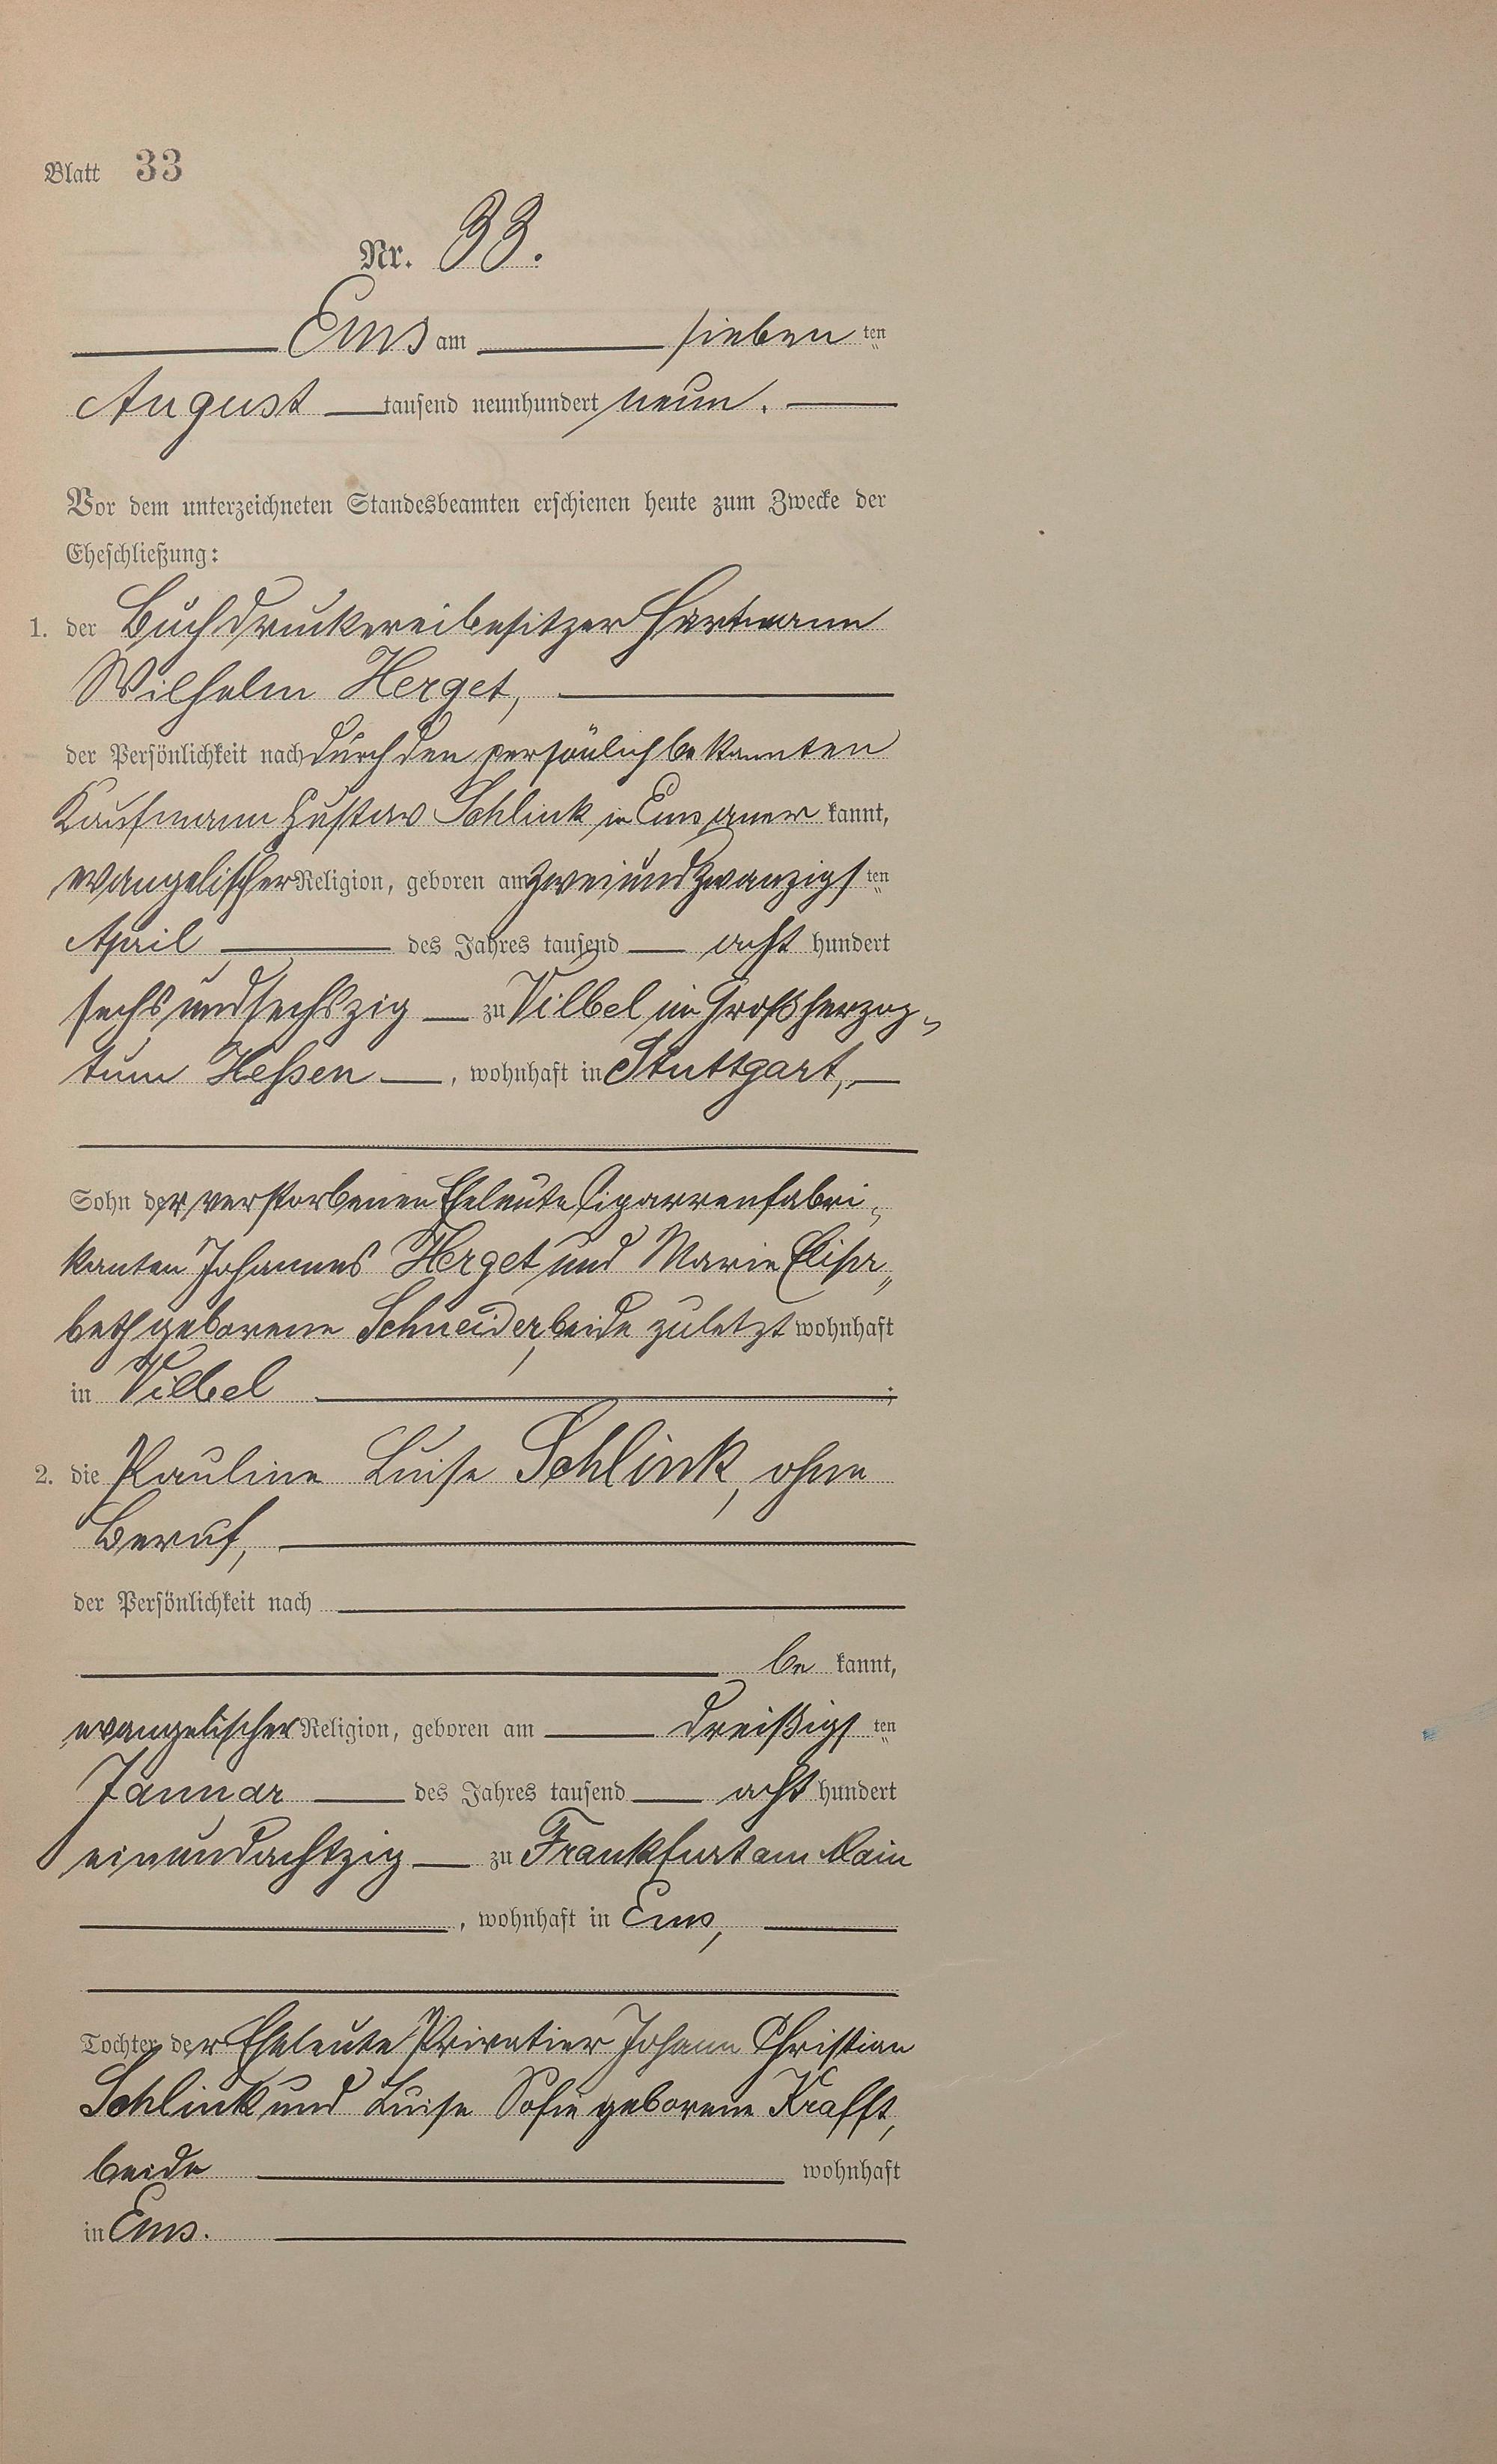 Blatt 33
Nr. 33.
Ems am sieben ten
August tausend neunhundert neun.
Vor dem unterzeichneten Standesbeamten erschienen heute zum Zwecke der
Eheschließung:
1. der Buchdruckereibesitzer Hartmann
Wilhelm Herget,
der Persönlichkeit nach durch den persönlich bekannten
Kaufmann Gustav Schlink in Ems aner kannt,
evangelischer Religion, geboren am zweiundzwanzigs ten
April des Jahres tausend acht hundert
sechsundsechszig zu Vilbel im Großherzog-
tum Hessen, wohnhaft in Stuttgart,
Sohn der verstorbenen Eheleute Cigarrenfabri-
kanten Johannes Herget und Marie Elisa-
beth geborene Schneider, beide zuletzt wohnhaft
in Vilbel ;
2. die Pauline Luise Schlink, ohne
Beruf,
der Persönlichkeit nach
be kannt,
evangelischer Religion, geboren am dreißigs ten
Januar des Jahres tausend acht hundert
einundachtzig zu Frankfurt am Main
, wohnhaft in Ems,
Tochter der Eheleute Privatier Johann Christian
Schlink und Luise Sofie geborene Krafft,
beide wohnhaft
in Ems.